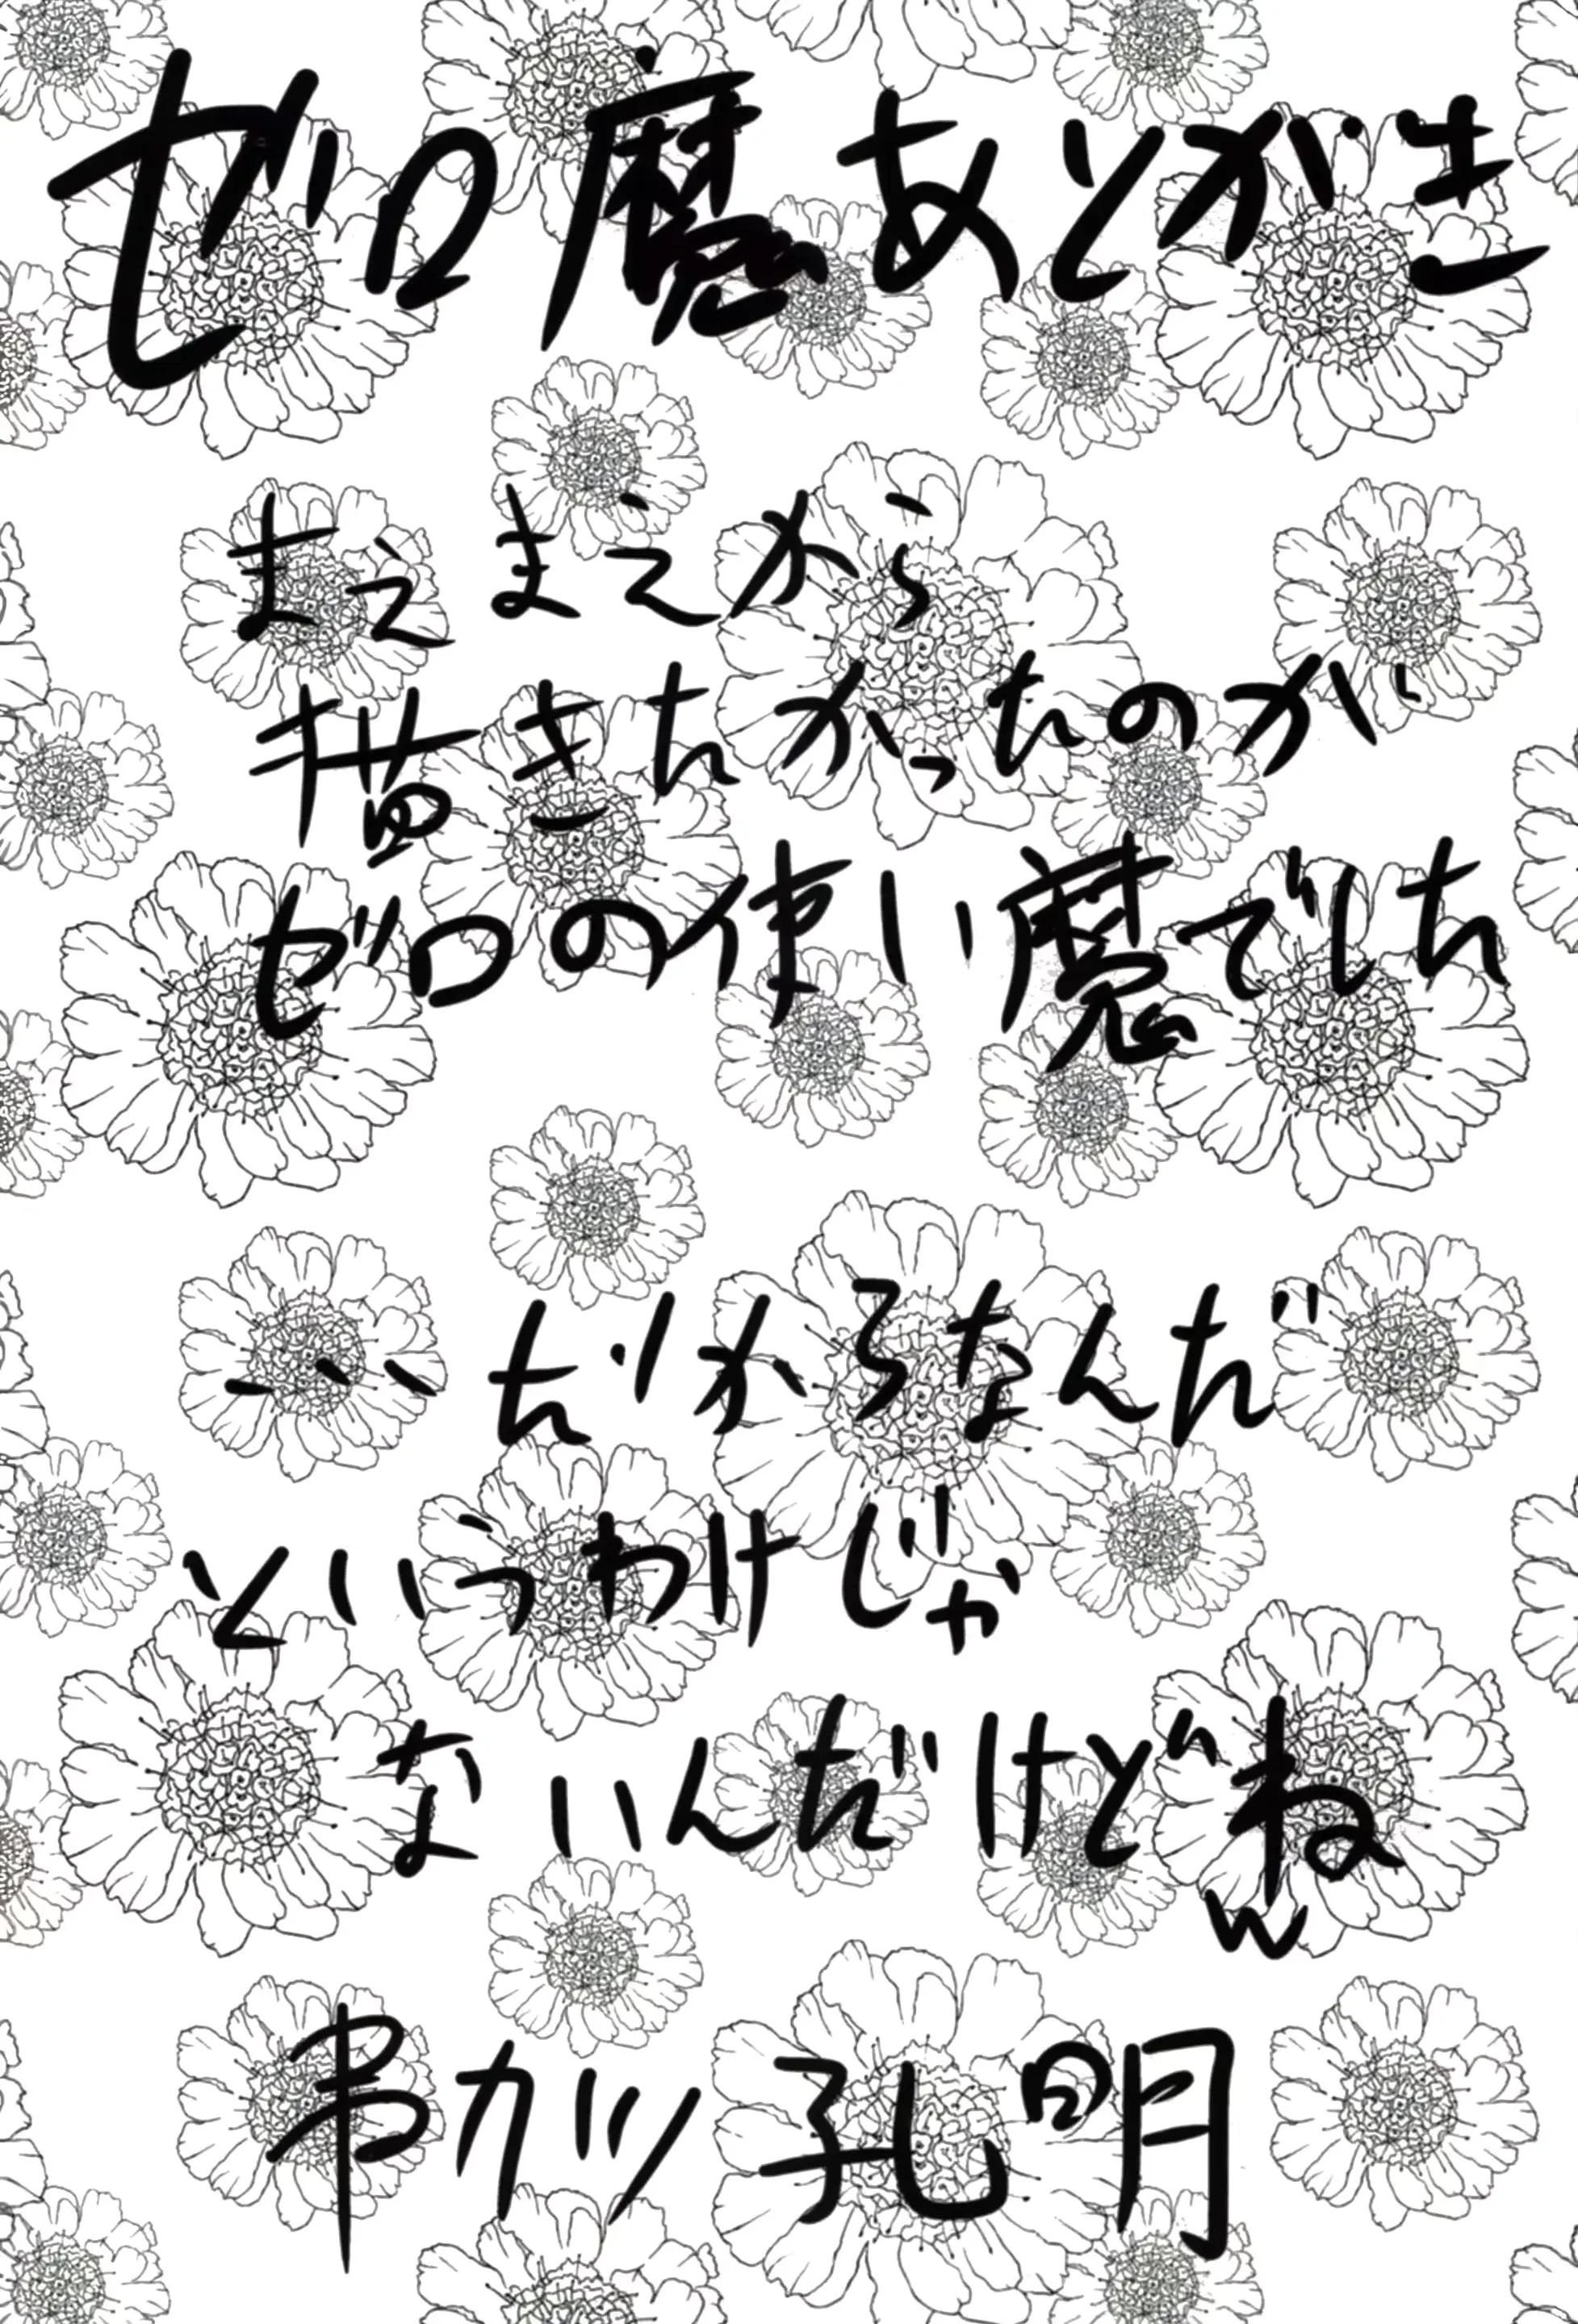 ゼロ魔あとがき
まえまえから
描きたかったのが
ゼロの使い魔でした
…だからなんだ
というわけじゃ
ないんだけどねw
串カツ孔明